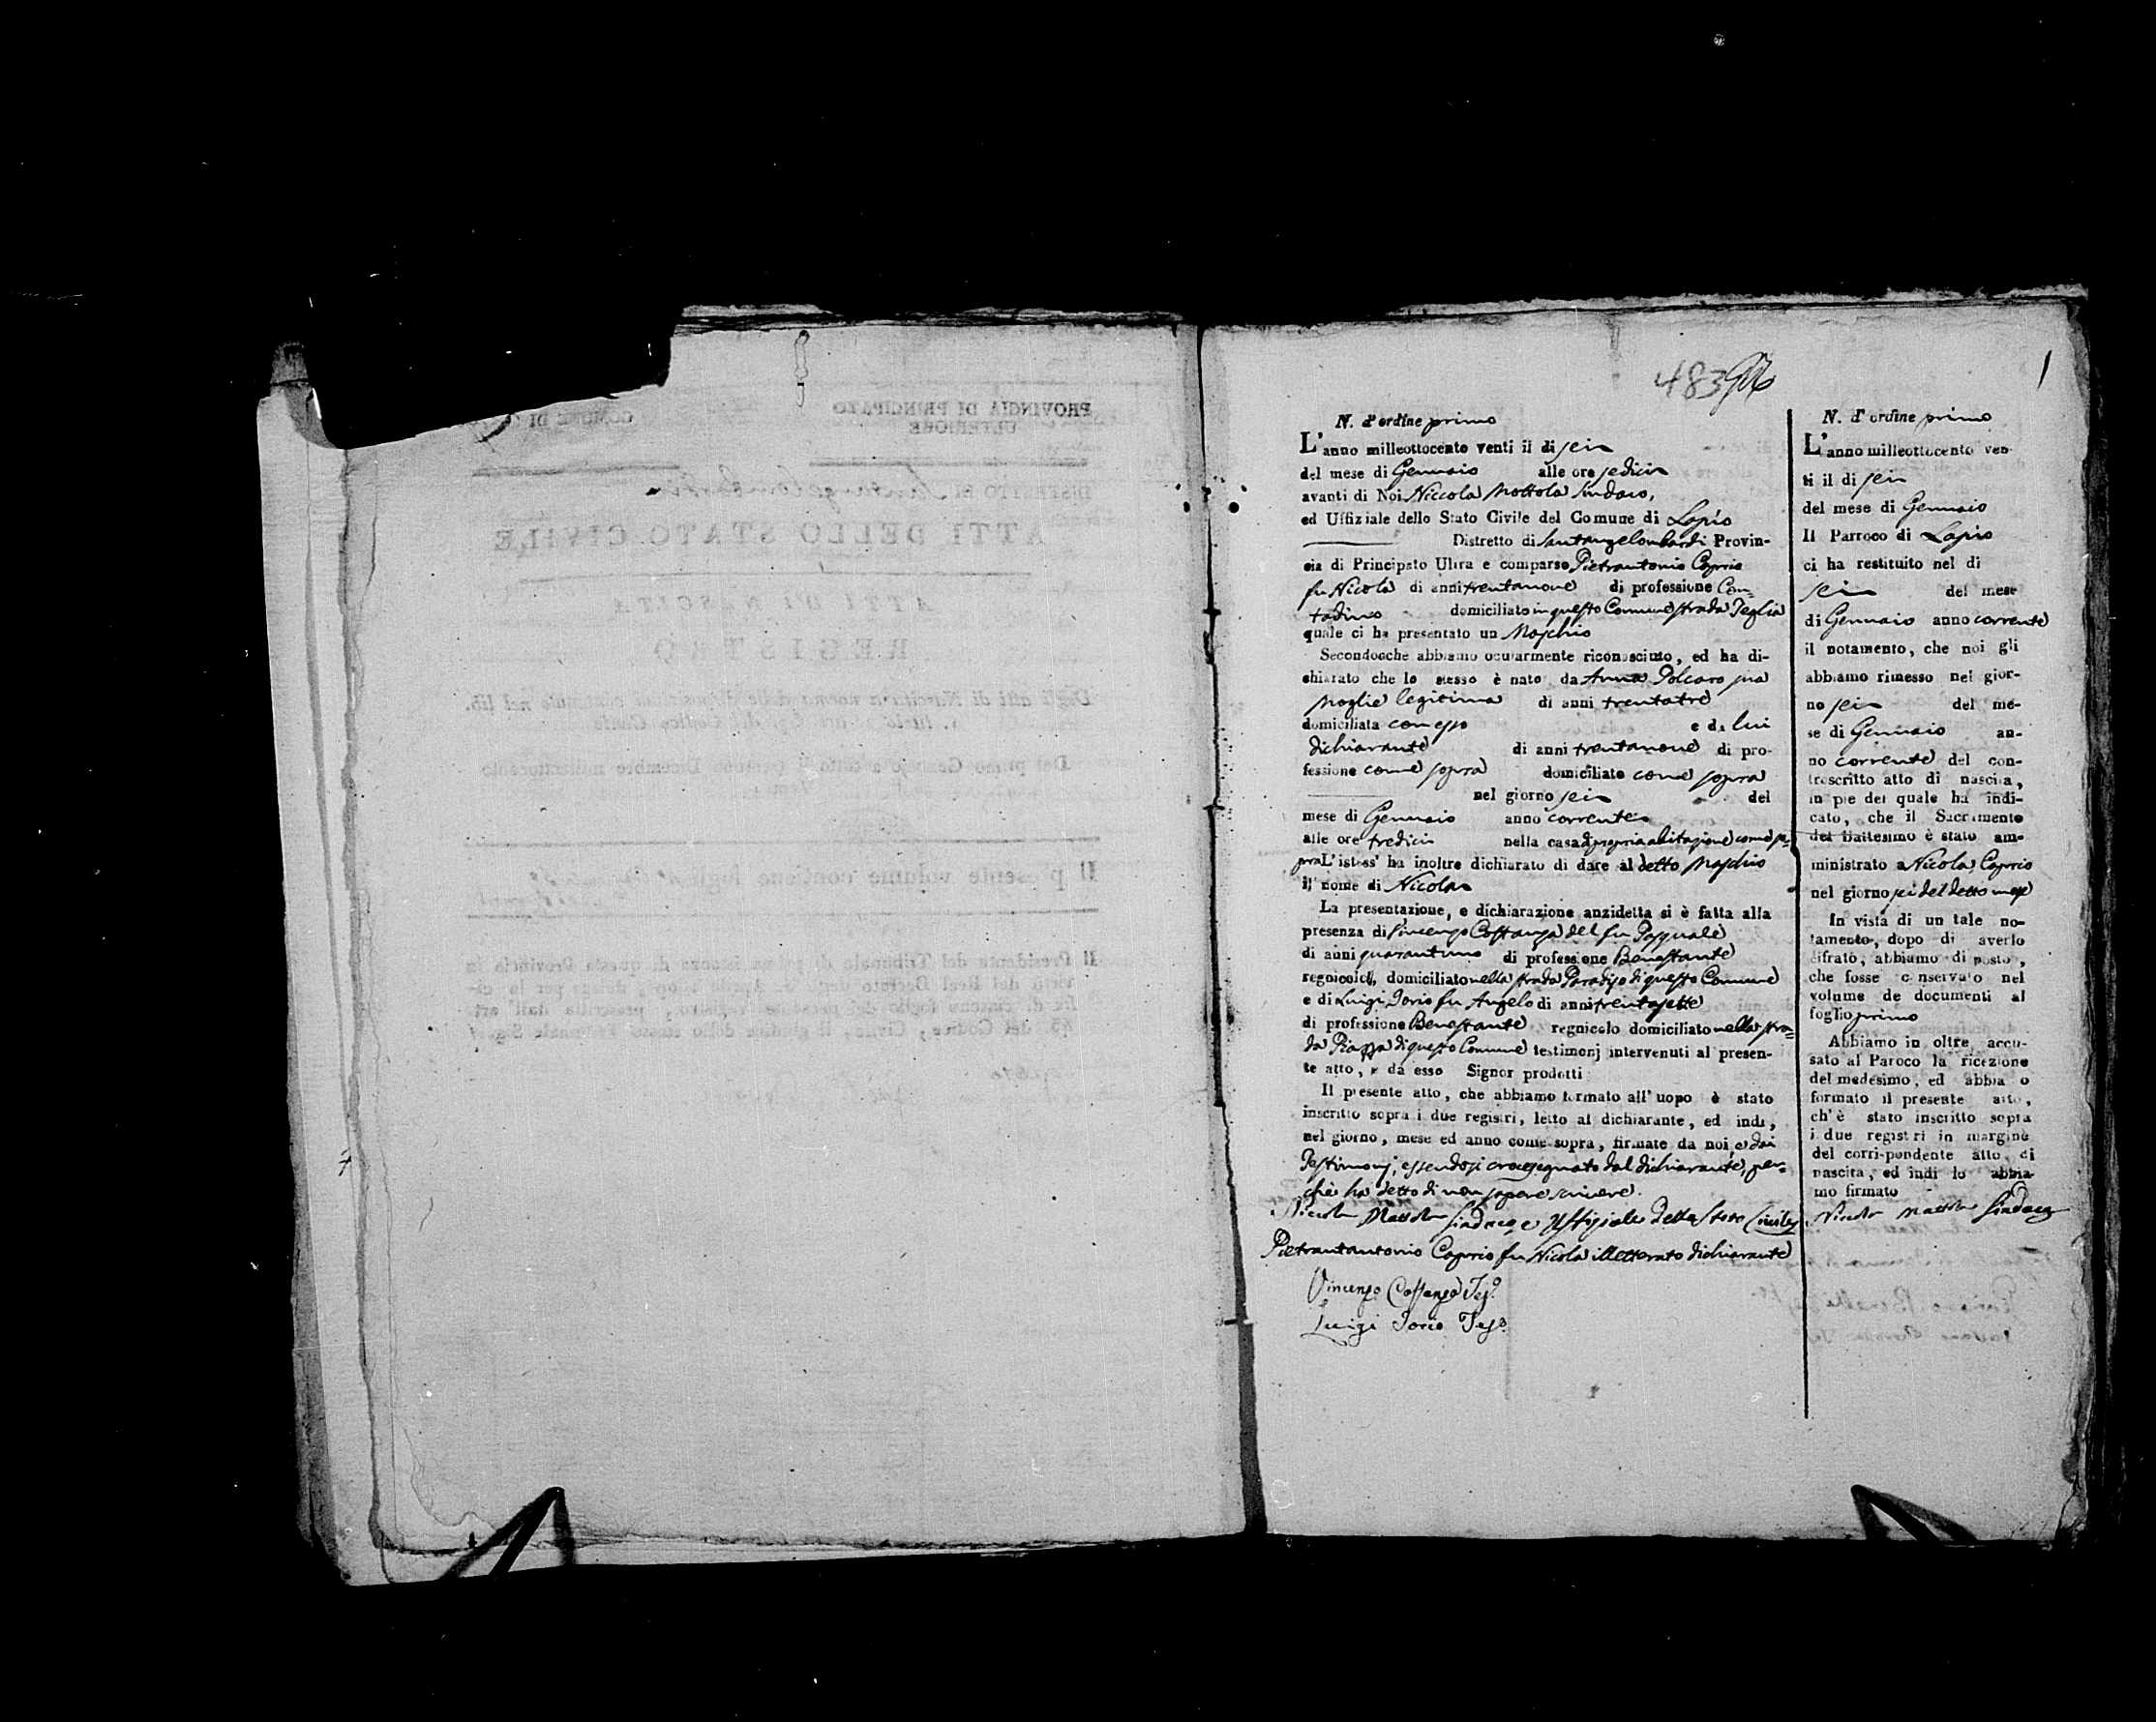 1
483
N. d'ordine primo
L'anno milleottocento venti il di sei
del mese di Gennaio alle ore sedici
avanti di Noi Niccola Mottola Sindaco,
ed Uffiziale dello Stato Civile del Comune di Lapio
Distretto di Santangelombardi Provin-
cia di Principato Ultra e comparso Pietrantonio Caprio
fu Nicola di anni trentanove di professione Con-
tadino domiciliato in questo Comune strada Teglia
quale ci ha presentato un Maschio
Secondoche abbiamo ocularmente riconosciuto, ed ha di-
chiarato che lo stesso è nato da Anna Polcaro sua
Moglie legitima di anni trentatre
domiciliata con esso e da lui
dichiarante di anni trentanove di pro-
fessione come sopra domiciliato come sopra
nel giorno sei del
mese di Gennaio anno corrente
alle ore tredici nella casa di propria abitazione come so-
pra L'istess' ha inoltre dichiarato di dare al detto Maschio
il nome di Nicola
La presentazione, e dichiarazione anzidetta si è fatta alla
presenza di Vincenzo Costanza del fu Pasquale
di anni quarantuno di professione Benestante
regnicolo, domiciliato nella strada Paradiso di questo Comune
e di Luigi Iorio fu Angelo di anni trentasette
di professione Benestante regnicolo domiciliato nella stra-
da Piazza di questo Comune testimonj intervenuti al presen-
te atto, e da esso Signor prodotti
Il presente atto, che abbiamo formato all' uopo è stato
inscritto sopra i due registri, letto al dichiarante, ed indi,
nel giorno, mese ed anno come sopra, firmato da noi, e dai
Testimonj, essendosi crocesegnato dal dichiarante, per-
chè ha detto di non sapere scrivere.
Niccola Mottola Sindaco, e Uffiziale dello Stato Civile
Pietrantantonio Caprio fu Nicola illetterato dichiarante
Vincenzo Costanza Tes.o
Luigi Iorio Tes.o
N. d'ordine primo
L'anno milleottocento ven-
ti il di sei
del mese di Gennaio
Il Parroco di Lapio
ci ha restituito nel di
sei del mese
di Gennaio anno corrente
il notamento, che noi gli
abbiamo rimesso nel gior-
no sei del me-
se di Gennaio an-
no corrente del con-
troscritto atto di nascita,
in piè del quale ha indi-
cato, che il Sacramento
del Battesimo è stato am-
ministrato a Nicola Caprio
nel giorno sei del detto mese
In vista di un tale no-
tamento, dopo di averlo
cifrato, abbiamo disposto,
che fosse conservato nel
volume de documenti al
foglio primo
Abbiamo in oltre accu-
sato al Paroco la ricezione
del medesimo, ed abbiamo
formato il presente atto,
ch'è stato inscritto sopra
i due registri in margine
del corrispondente atto di
nascita, ed indi lo abbia-
mo firmato
Niccola Mottola Sindaco